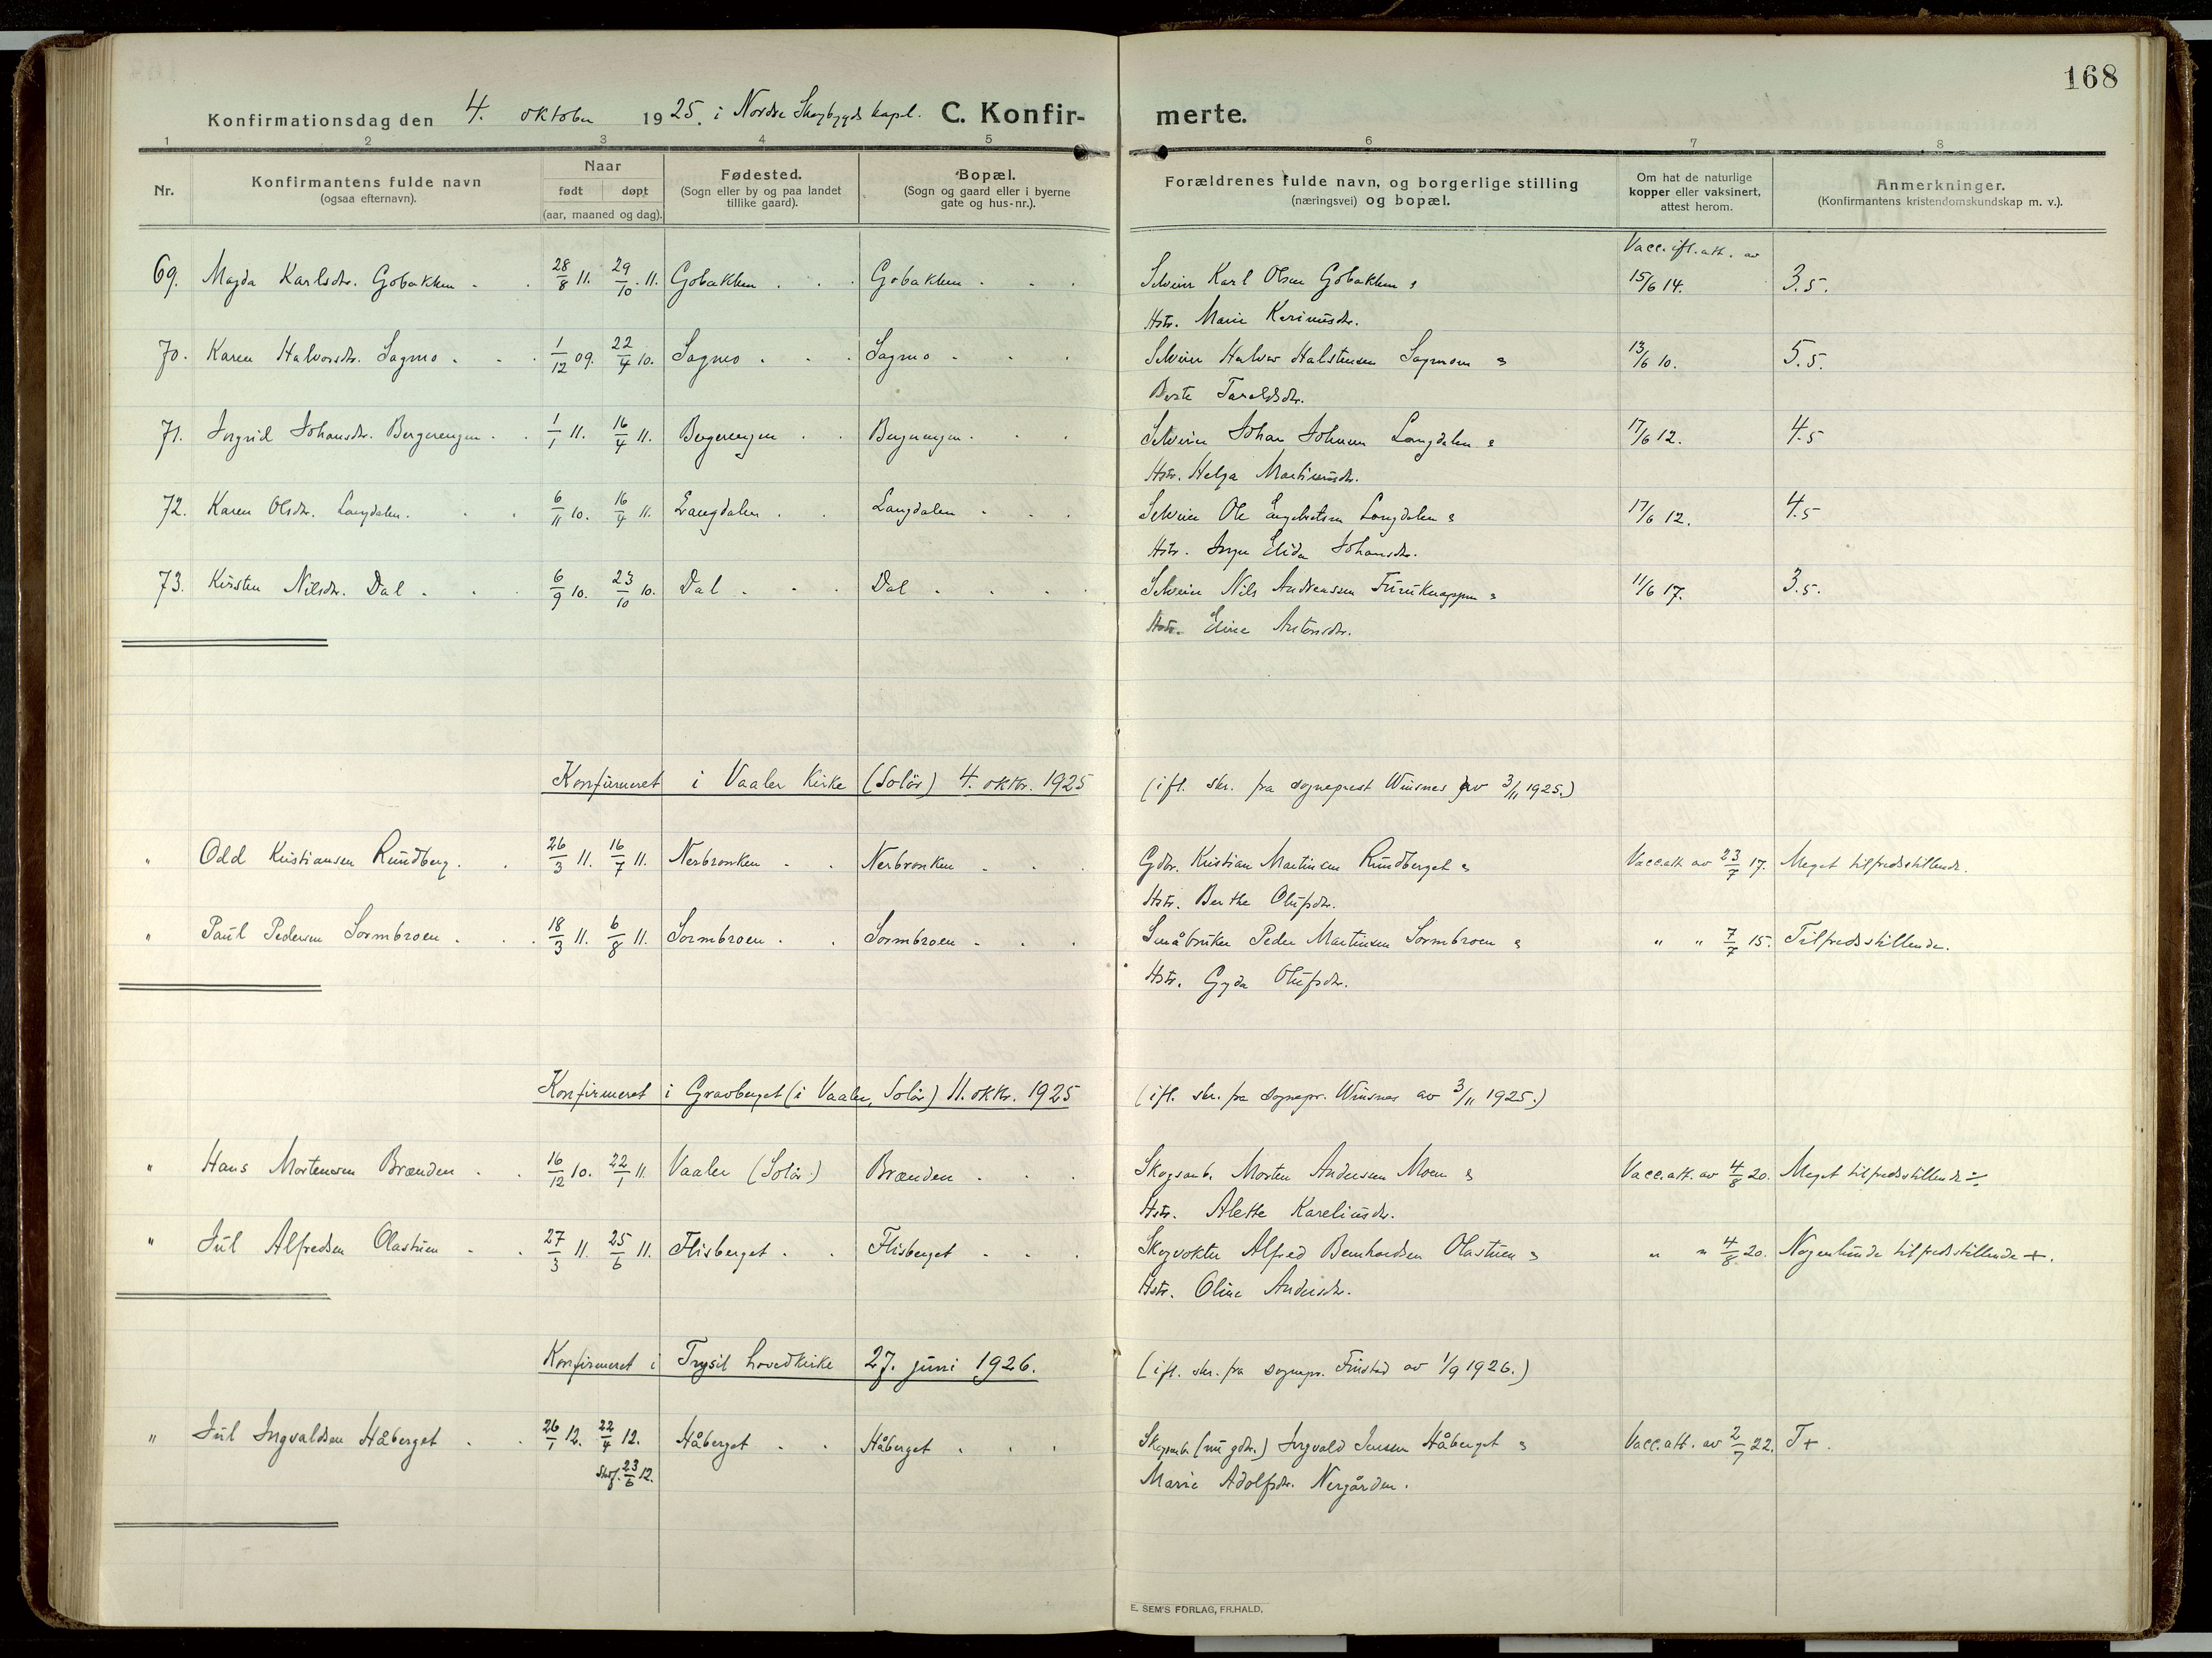 168
Konfirmationsdag den 4. oktober 1925. i Nordre Skogbygds kapl. C. Konfirmerte.
1 2 3 4 5 6 7 8
Nr. Konfirmantens fulde navn (ogsaa efternavn). Naar født døpt (aar, maaned og dag). Fødested. (Sogn eller by og paa landet tillike gaard). Bopæl. (Sogn og gaard eller i byerne gate og hus-nr.). Forældrenes fulde navn, og borgerlige stilling (næringsvei) og bopæl. Om hat de naturlige kopper eller vaksinert, attest herom. Anmerkninger. (Konfirmantens kristendomskundskap m. v.).
Vacc. ifl. att. av
69. Magda Karlsdtr. Gobakken 28/8 11. 29/10 11. Gobakken Gobakken Selveier Karl Olsen Gobakken & 15/6 14. 3.5.
Hstr. Marie Karinusdtr.
70. Karen Halvorsdtr. Sagmo 1/12 09. 22/4 10. Sagmo Sagmo Selveier Halvor Halstensen Sagmoen & 13/6 10. 5.5.
Berte Taraldsdtr.
71. Ingrid Johansdtr. Bergerengen 1/1 11. 16/4 11. Bergerengen Bergerengen Selveier Johan Johnsen Langdalen & 17/6 12. 4.5
Hstr. Helga Martinusdtr.
72. Karen Olsdtr. Langdalen. 6/11 10. 16/4 11. Langdalen Langdalen Selveier Ole Engebretsen Langdalen & 17/6 12. 4.5
Hstr. Inga Elida Johansdtr.
73. Kirsten Nilsdtr. Dal 6/9 10. 23/10 10. Dal Dal Selveier Nils Andreassen Furuknappen & 11/6 17. 3.5.
Hstr. Eline Antonsdtr.
Konfirmeret i Vaaler Kirke (Solør) 4. oktbr. 1925 (ifl. skr. fra sogneprest Winsnes av 3/11 1925.)
" Odd Kristiansen Rundberg. 26/3 11. 16/7 11. Nerbronken Nerbronken Gdbr. Kristian Martinsen Rundberget & Vacc.att. av 23/7 17. Meget tilfredsstillende.
Hstr. Berthe Olufsdtr.
" Paul Pedersen Sormbroen 18/3 11. 6/8 11. Sormbroen Sormbroen Småbruker Peder Martinsen Sormbroen & " " 7/7 15. Tilfredsstillende.
Hstr. Gyda Olufsdtr.
Konfirmeret i Gravberget (i Vaaler, Solør) 11. oktbr. 1925 (ifl. skr. fra sognepr. Winsnes av 3/11 1925.)
" Hans Mortensen Brænden 16/12 10. 22/1 11. Vaaler (Solør) Brænden Skogsarb. Morten Andersen Moen & Vacc.att. av 4/8 20. Meget tilfredsstillende ÷
Hstr. Alette Kareliusdtr.
" Jul Alfredsen Olastuen 27/3 11. 25/6 11. Flisberget Flisberget Skogvokter Alfred Bernhardsen Olastuen & " " 4/8 20. Nogenlunde tilfredsstillende +.
Hstr. Oline Andersdtr.
Konfirmeret i Trysil hovedkirke 27. juni 1926. (ifl. skr. fra sognepr. Finstad av 1/9 1926.)
" Jul Ingvaldsen Håberget 26/1 12. 22/4 12. Håberget Håberget Skogsarb. (nu gdbr.) Ingvald Jensen Håberget & Vacc.att. av 2/7 22. T+.
Stadf. 23/6 12. Marie Adolfsdtr. Nergården.
E. SEM'S FORLAG, FR.HALD.